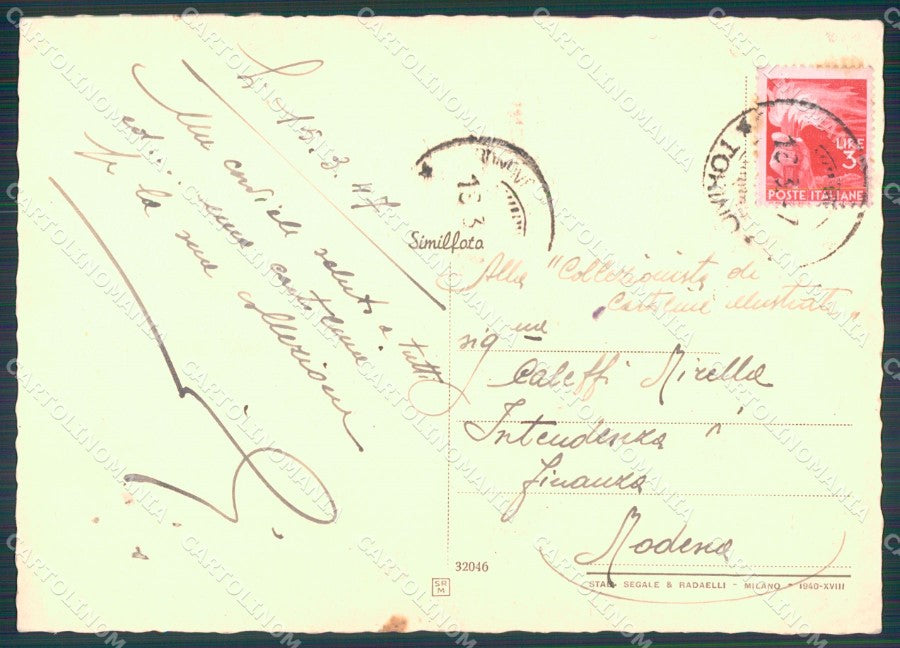 15.3.47
Un cordiale saluto a tutti
ed... una cartolina
per la sua collezione
Similfoto
TORINO
LIRE
3
POSTE ITALIANE
Alla "Collezionista di
cartoline illustrate"
sig.na
Caleffi Mirella
Intendenza
Finanza
Modena
32046
SR
M
STAB. SEGALE & RADAELLI - MILANO - 1940-XVIII
CARTOLINOMANIA